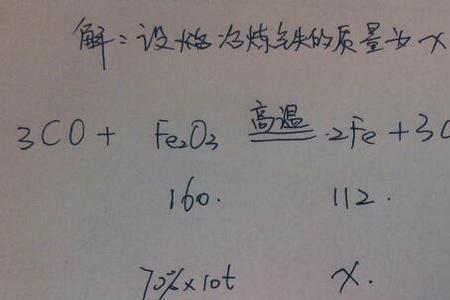 解：设能冶炼铁的质量为x
3CO + Fe₂O₃ 高温 2Fe + 3C
160. 112.
70%×10t x.